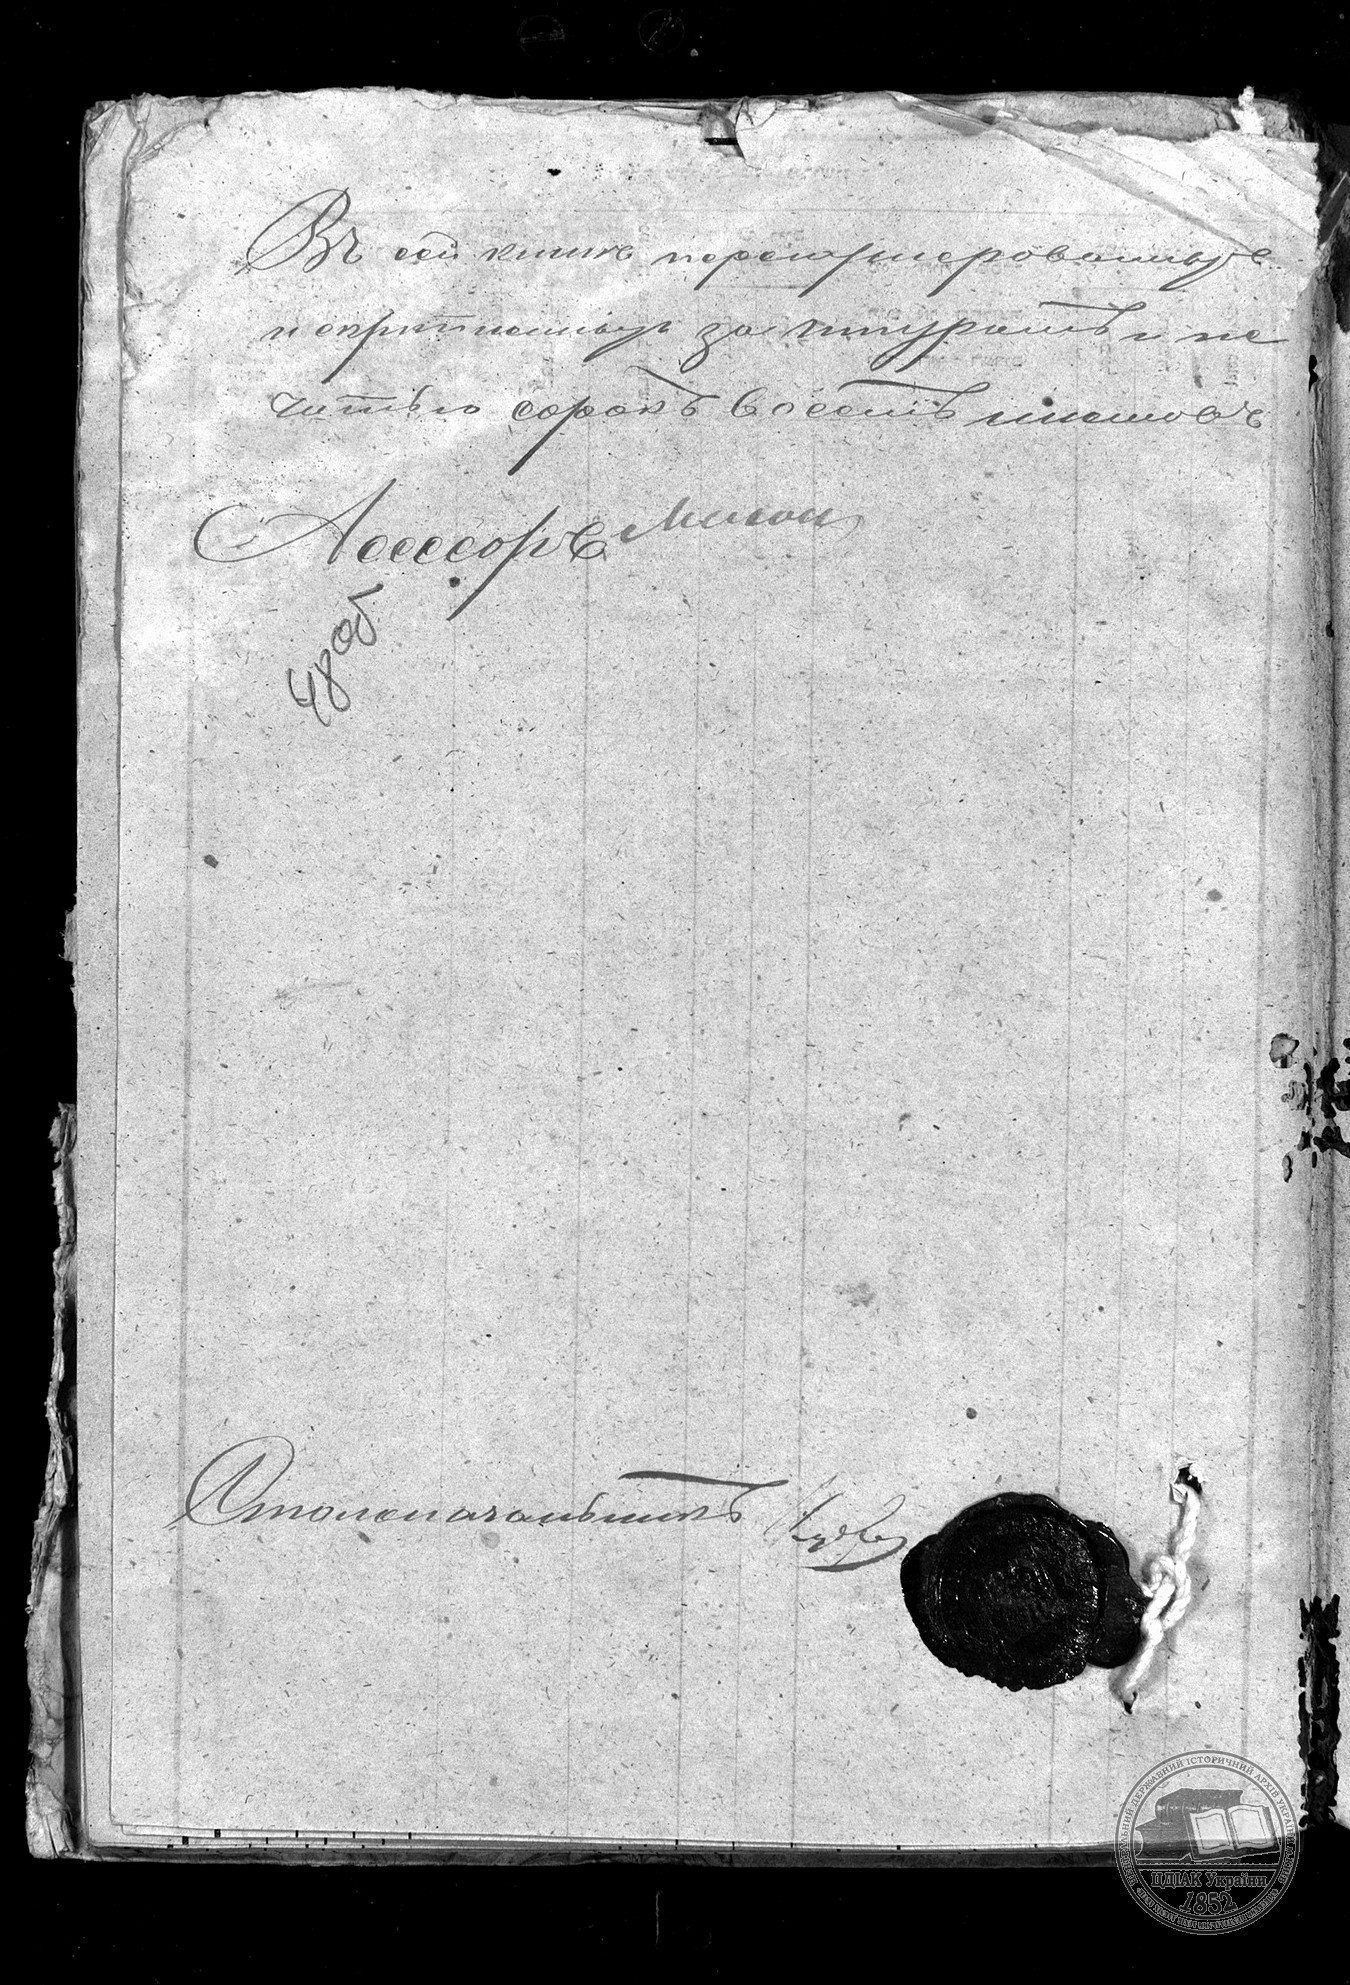 Въ сей книгѣ перенумерованныхъ
и скрѣпленныхъ за шнуромъ и пе
чатью сорокъ восемь листовъ
Ассесоръ
48 об
Столоначальникъ
ЦЕНТРАЛЬНИЙ ДЕРЖАВНИЙ ІСТОРИЧНИЙ АРХІВ УКРАЇНИ
ЦДІАК України
1852